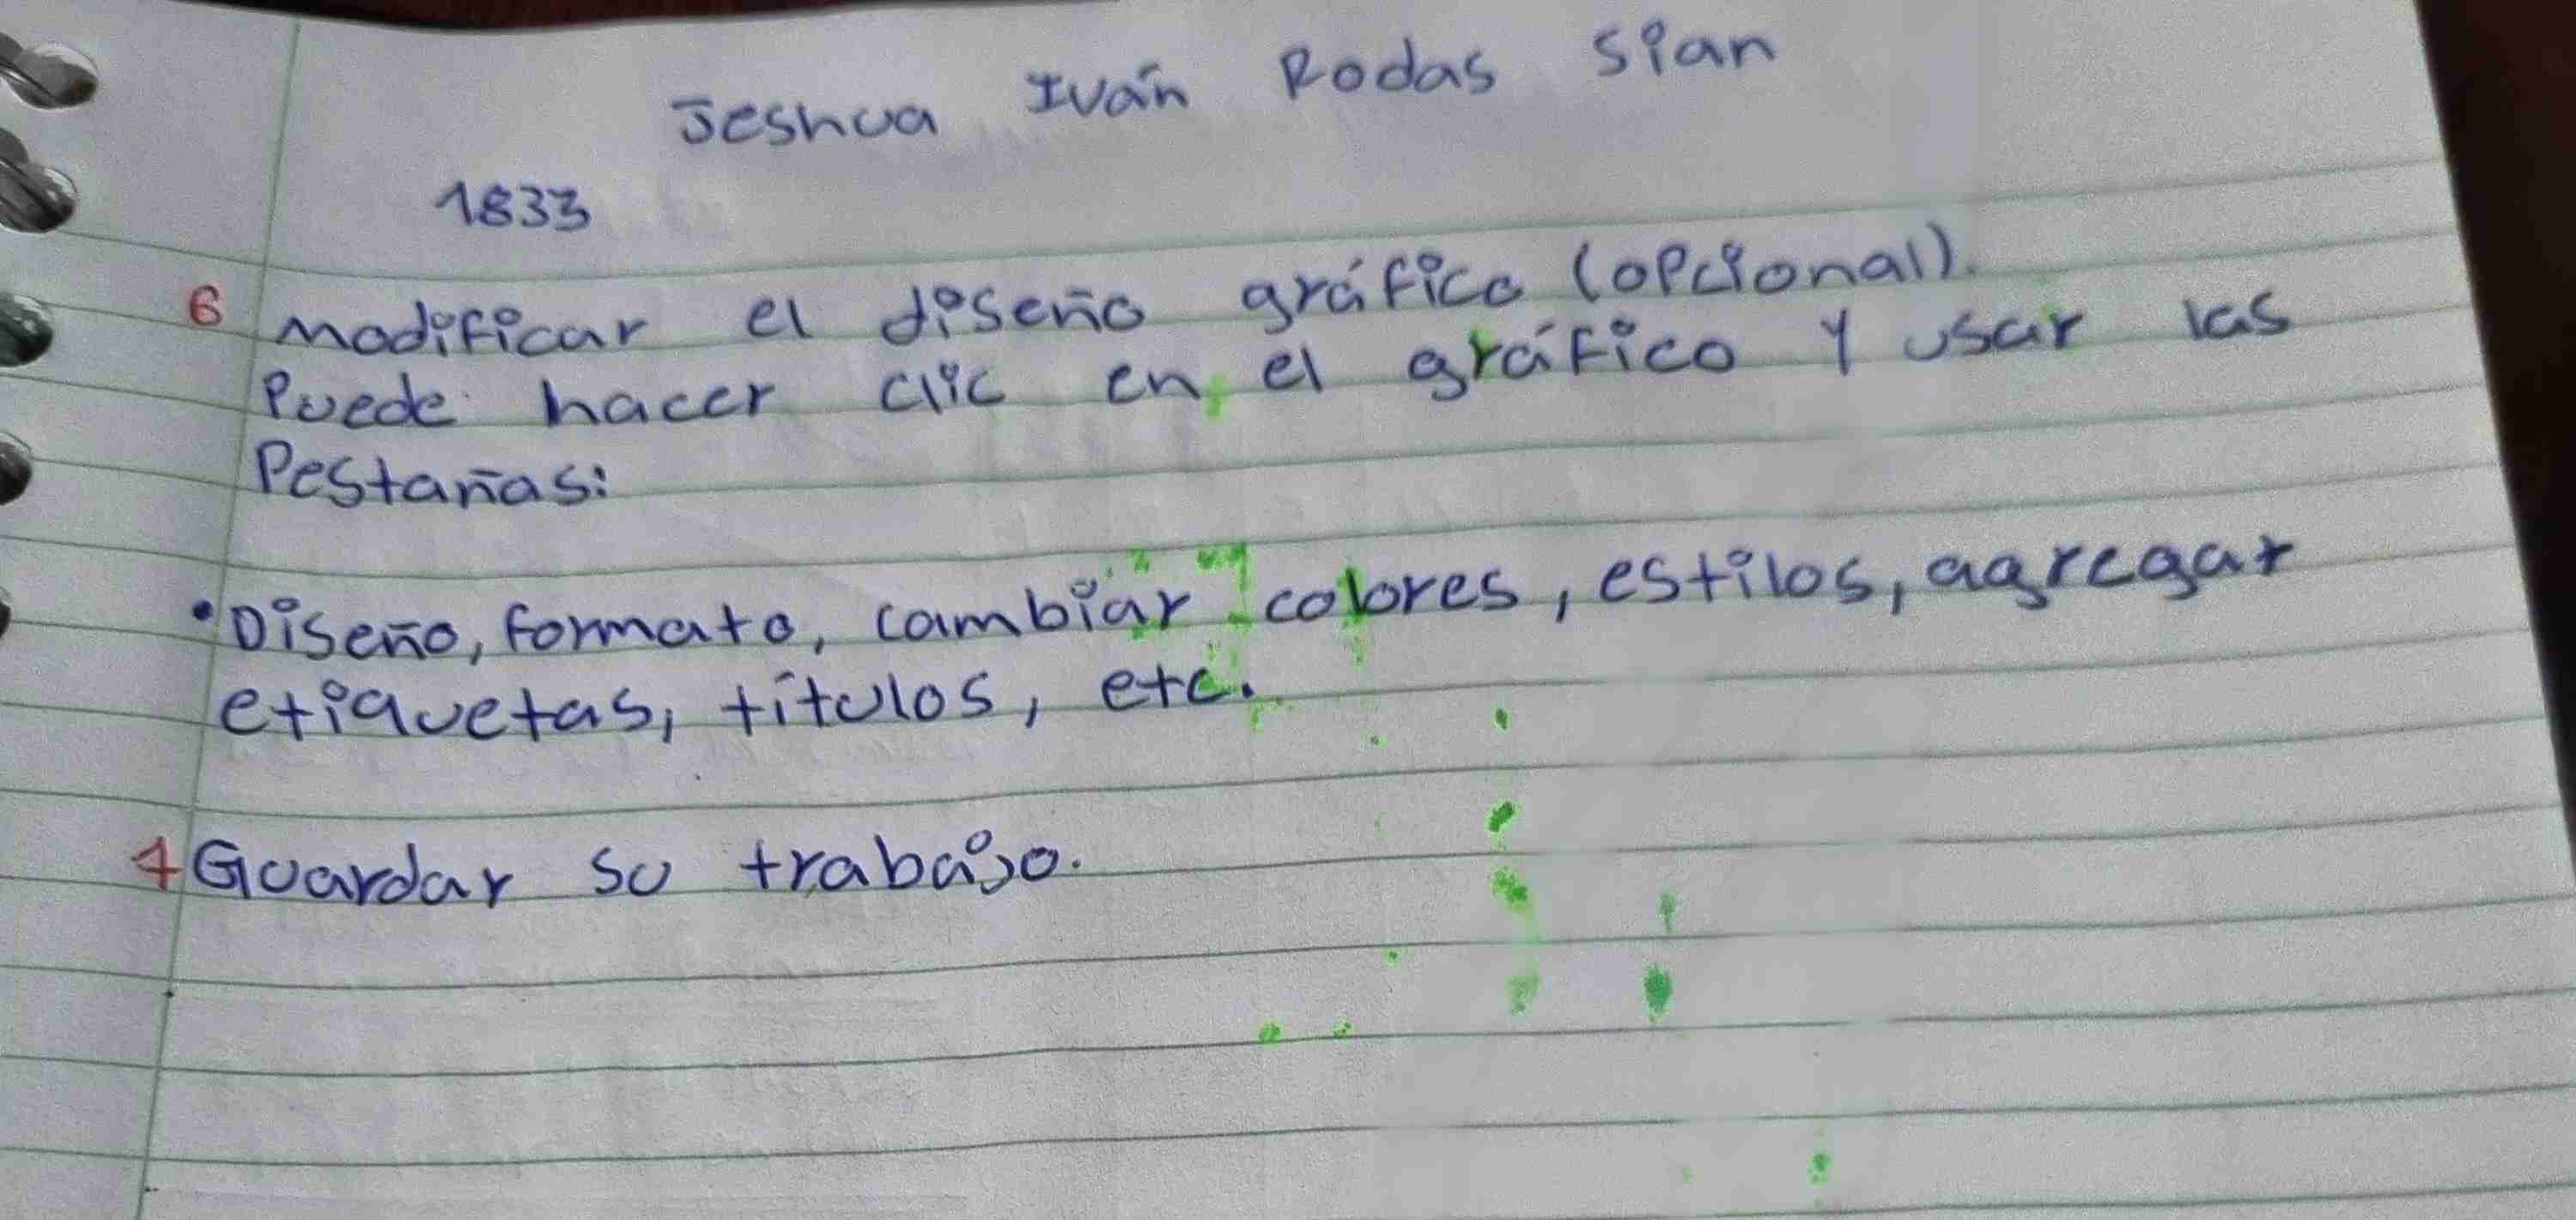 Jeshua Iván Rodas Sian
1833
6 modificar el diseño gráfico (opcional).
Puede hacer clic en el gráfico y usar las
Pestañas:
• Diseño, formato, cambiar colores, estilos, agregar
etiquetas, títulos, etc.
7 Guardar su trabajo.